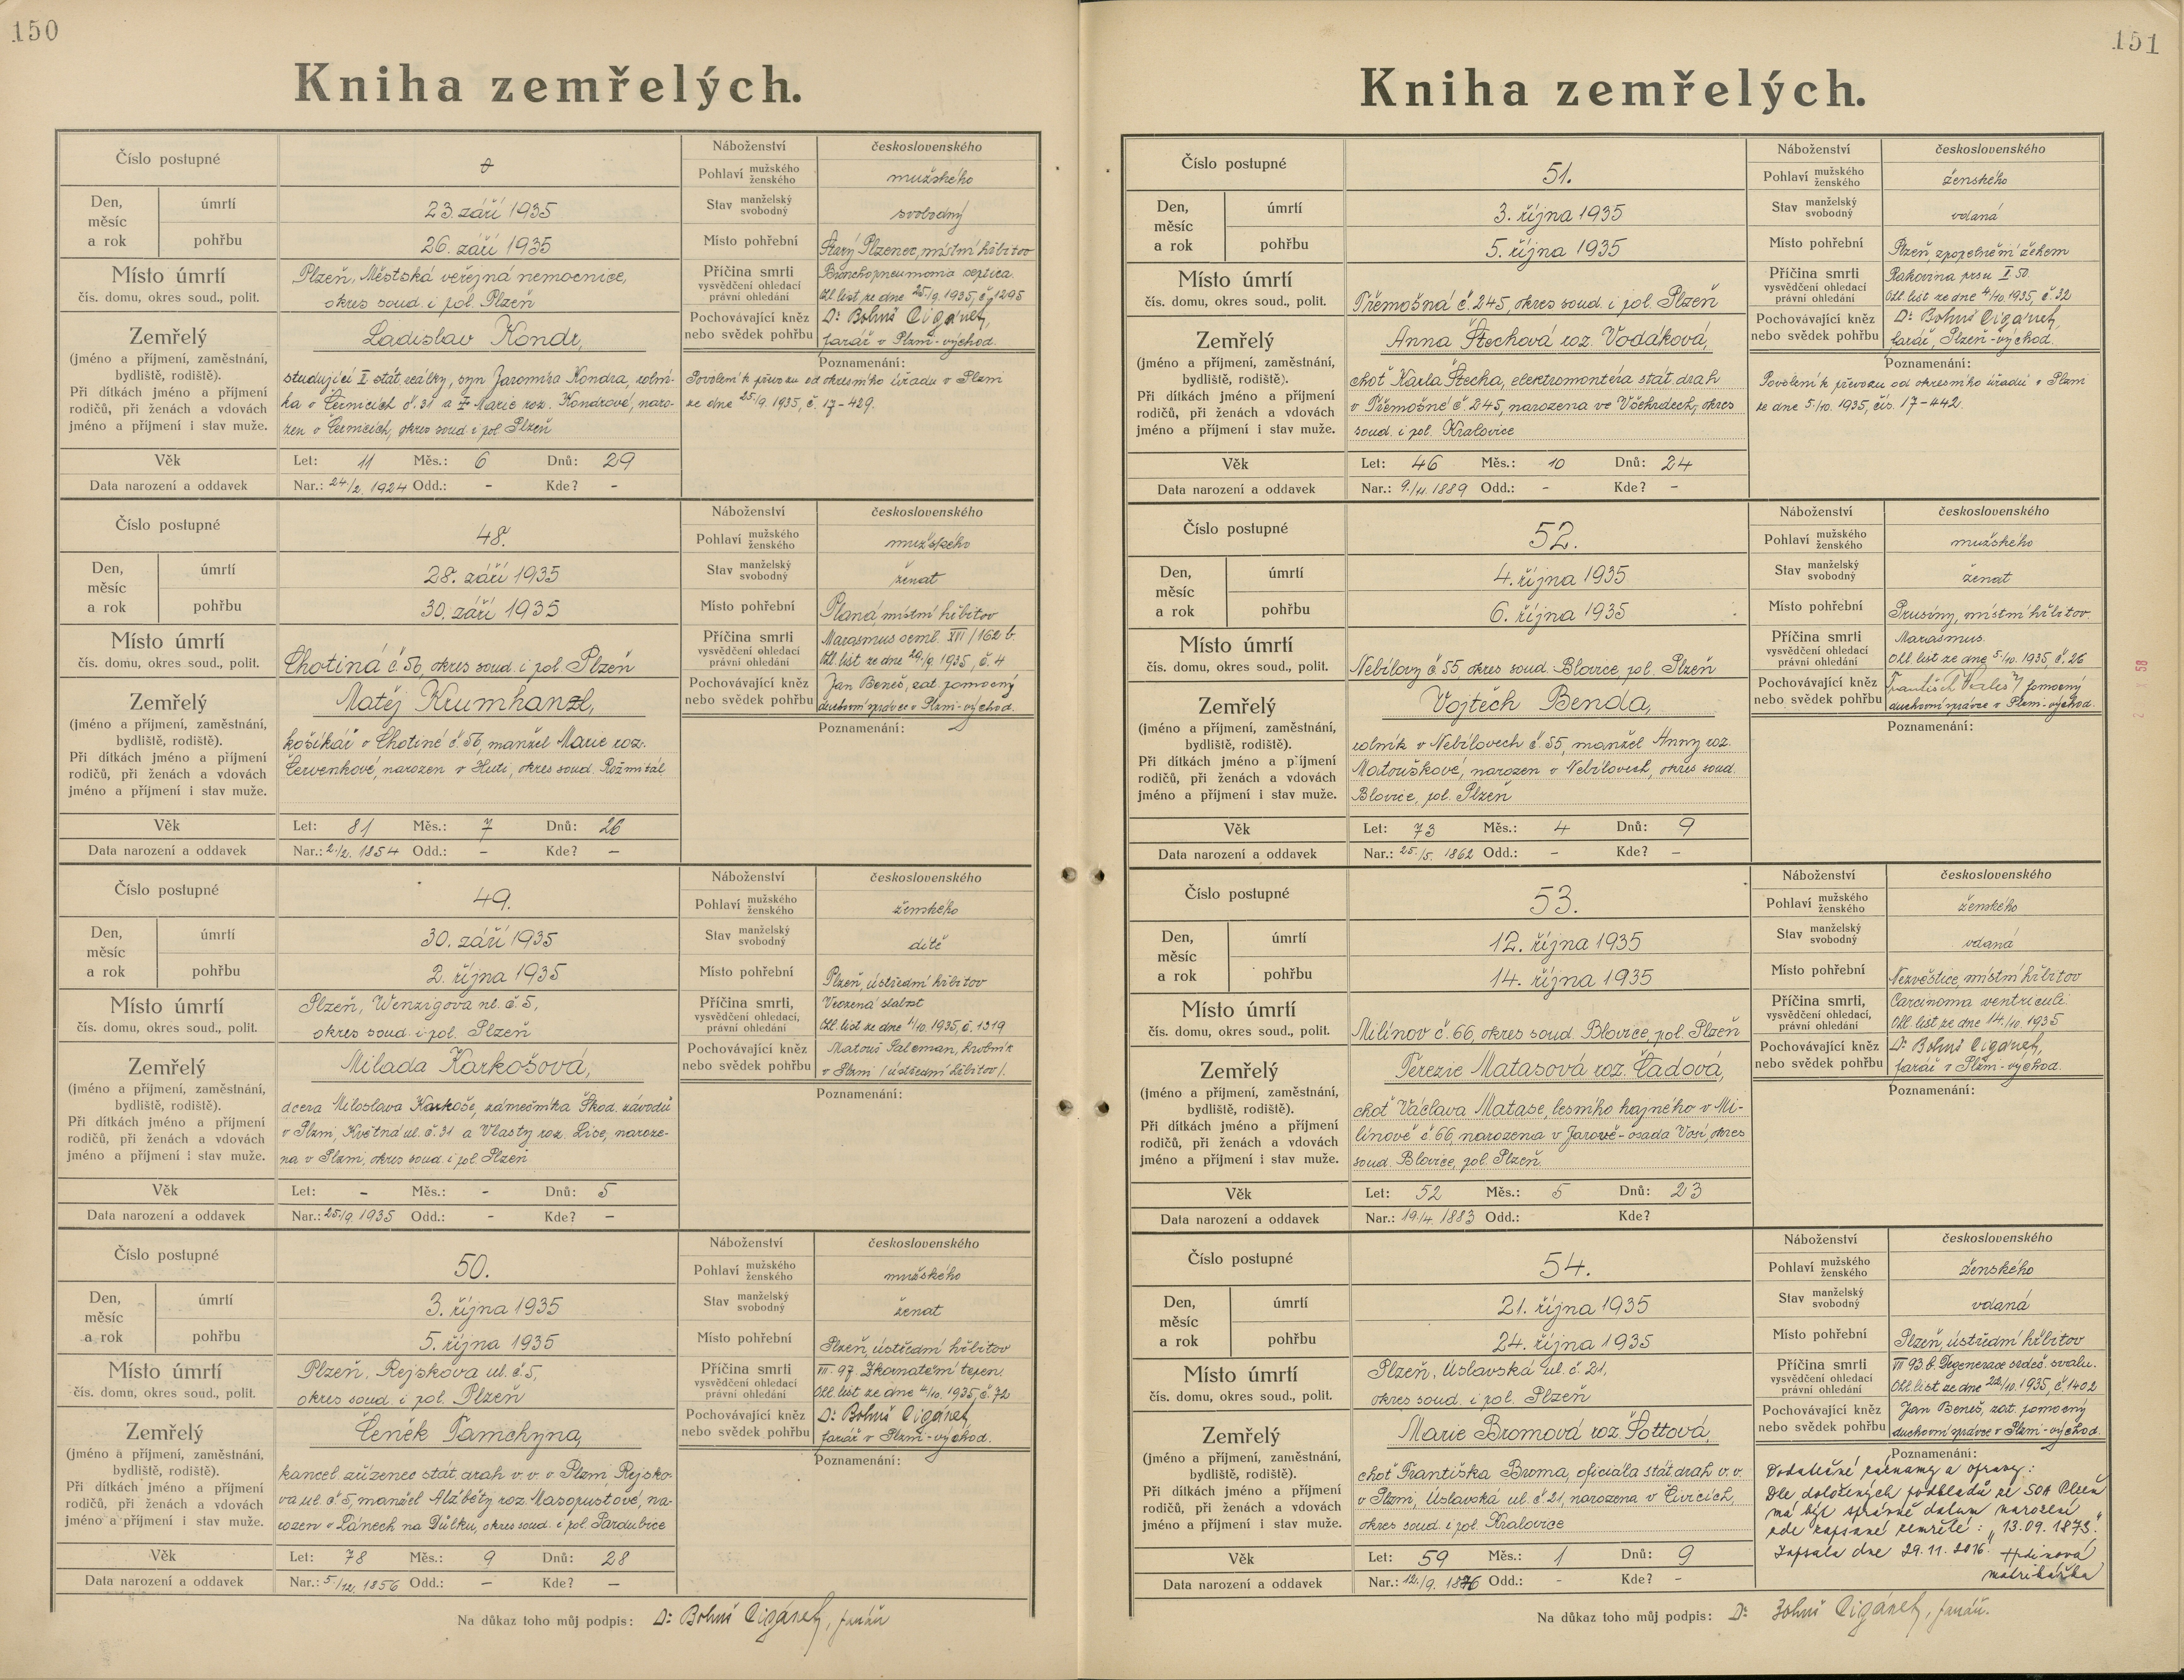 150
Kniha zemřelých.
Číslo postupné
Náboženství československého
Pohlaví mužského ženského mužského
Den, měsíc a rok úmrtí 23. září 1935
Stav manželský svobodný svobodný
pohřbu 26. září 1935
Místo pohřební Starý Plzenec, místní hřbitov
Místo úmrtí Plzeň, Městská veřejná nemocnice,
čís. domu, okres soud., polit. okres soud. i pol. Plzeň
Příčina smrti Bronchopneumonia septica.
vysvědčení ohledací právní ohledání Ohl. list ze dne 25./9. 1935, č. 1295
Zemřelý Ladislav Kondr,
Pochovávající kněz Dr. Bohuš Cigánek,
nebo svědek pohřbu farář v Plzni-východ.
(jméno a příjmení, zaměstnání, bydliště, rodiště).
Při dítkách jméno a příjmení rodičů, při ženách a vdovách jméno a příjmení i stav muže.
studující I. stát. reálky, syn Jaromíra Kondra, rolní-
ka v Černicích č. 31 a Marie roz. Kondrové, naro-
zen v Černicích, okres soud i pol. Plzeň
Poznamenání:
Povolení k převozu od okresního úřadu v Plzni
ze dne 25./9. 1935, č. 17-429.
Věk Let: 11 Měs.: 6 Dnů: 29
Data narození a oddavek Nar.: 24/2. 1924 Odd.: - Kde? -
Číslo postupné 48.
Náboženství československého
Pohlaví mužského ženského mužského
Den, měsíc a rok úmrtí 28. září 1935
Stav manželský svobodný ženat
pohřbu 30. září 1935
Místo pohřební Planá, místní hřbitov
Místo úmrtí
čís. domu, okres soud., polit. Chotiná č. 56, okres soud. i pol. Plzeň
Příčina smrti Marasmus senil. XVI/162 b.
vysvědčení ohledací právní ohledání Ohl. list ze dne 29./9. 1935, č. 4
Zemřelý Matěj Krumhanzl,
Pochovávající kněz Jan Beneš, zat. pomocný
nebo svědek pohřbu duchovní správce v Plzni-východ.
(jméno a příjmení, zaměstnání, bydliště, rodiště).
Při dítkách jméno a příjmení rodičů, při ženách a vdovách jméno a příjmení i stav muže.
košíkář v Chotiné č. 56, manžel Marie roz.
Červenkové, narozen v Huti, okres soud. Rožmitál
Poznamenání:
Věk Let: 81 Měs.: 7 Dnů: 26
Data narození a oddavek Nar.: 2./2. 1854 Odd.: - Kde? -
Číslo postupné 49.
Náboženství československého
Pohlaví mužského ženského ženského
Den, měsíc a rok úmrtí 30. září 1935
Stav manželský svobodný dítě
pohřbu 2. října 1935
Místo pohřební Plzeň, ústřední hřbitov
Místo úmrtí Plzeň, Wenzigova ul. č. 5,
čís. domu, okres soud., polit. okres soud. i pol. Plzeň
Příčina smrti, Vrozená slabost
vysvědčení ohledací, právní ohledání Ohl. list ze dne 1/10. 1935, č. 1319
Zemřelý Milada Karkošová,
Pochovávající kněz Matouš Saleman, hrobník
nebo svědek pohřbu v Plzni /ústřední hřbitov/.
(jméno a příjmení, zaměstnání, bydliště, rodiště).
Při dítkách jméno a příjmení rodičů, při ženách a vdovách jméno a příjmení i stav muže.
dcera Miloslava Karkoše, zámečníka Škod. závodů
v Plzni, Květná ul. č. 31 a Vlasty roz. Lice, naroze-
na v Plzni, okres soud. i pol. Plzeň
Poznamenání:
Věk Let: - Měs.: - Dnů: 5
Data narození a oddavek Nar.: 25./9. 1935 Odd.: - Kde? -
Číslo postupné 50.
Náboženství československého
Pohlaví mužského ženského mužského
Den, měsíc a rok úmrtí 3. října 1935
Stav manželský svobodný ženat
pohřbu 5. října 1935
Místo pohřební Plzeň, ústřední hřbitov
Místo úmrtí Plzeň, Rejskova ul. č. 5,
čís. domu, okres soud., polit. okres soud. i pol. Plzeň
Příčina smrti VII. 97. Zkornatění tepen.
vysvědčení ohledací právní ohledání Ohl. list ze dne 4/10. 1935, č. 72
Zemřelý Čeněk Tamchyna,
Pochovávající kněz Dr. Bohuš Cigánek,
nebo svědek pohřbu farář v Plzni-východ.
(jméno a příjmení, zaměstnání, bydliště, rodiště).
Při dítkách jméno a příjmení rodičů, při ženách a vdovách jméno a příjmení i stav muže.
kancel. zřízenec stát. drah v. v. v Plzni, Rejsko-
va ul. č. 5, manžel Alžběty roz. Masopustové, na-
rozen v Lánech na Důlku, okres soud. i pol. Pardubice
Poznamenání:
Věk Let: 78 Měs.: 9 Dnů: 28
Data narození a oddavek Nar.: 5./12. 1856 Odd.: - Kde? -
Na důkaz toho můj podpis: Dr. Bohuš Cigánek, farář
151
Kniha zemřelých.
Číslo postupné 51.
Náboženství československého
Pohlaví mužského ženského ženského
Den, měsíc a rok úmrtí 3. října 1935
Stav manželský svobodný vdaná
pohřbu 5. října 1935
Místo pohřební Plzeň, zpopelnění žehem
Místo úmrtí
čís. domu, okres soud., polit. Třemošná č. 245, okres soud. i pol. Plzeň
Příčina smrti Rakovina prsu I 50.
vysvědčení ohledací právní ohledání Ohl. list ze dne 4/10. 1935, č. 32
Zemřelý Anna Štechová roz. Vodáková,
Pochovávající kněz Dr. Bohuš Cigánek,
nebo svědek pohřbu farář, Plzeň-východ.
(jméno a příjmení, zaměstnání, bydliště, rodiště).
Při dítkách jméno a příjmení rodičů, při ženách a vdovách jméno a příjmení i stav muže.
choť Karla Štecha, elektromontéra stát. drah
v Třemošné č. 245, narozena ve Všehrdech, okres
soud. i pol. Kralovice
Poznamenání:
Povolení k převozu od okresního úřadu v Plzni
ze dne 5./10. 1935, čís. 17-442.
Věk Let: 46 Měs.: 10 Dnů: 24
Data narození a oddavek Nar.: 9./11. 1889 Odd.: - Kde? -
Číslo postupné 52.
Náboženství československého
Pohlaví mužského ženského mužského
Den, měsíc a rok úmrtí 4. října 1935
Stav manželský svobodný ženat
pohřbu 6. října 1935
Místo pohřební Prusiny, místní hřbitov.
Místo úmrtí
čís. domu, okres soud., polit. Nebílovy č. 55, okres soud. Blovice, pol. Plzeň
Příčina smrti Marasmus.
vysvědčení ohledací právní ohledání Ohl. list ze dne 5./10. 1935, č. 26
Zemřelý Vojtěch Benda,
Pochovávající kněz František pomocný
nebo svědek pohřbu duchovní správce v Plzni-východ.
(jméno a příjmení, zaměstnání, bydliště, rodiště).
Při dítkách jméno a příjmení rodičů, při ženách a vdovách jméno a příjmení i stav muže.
rolník v Nebílovech č. 55, manžel Anny roz.
Matouškové, narozen v Nebílovech, okres soud.
Blovice, pol. Plzeň
Poznamenání:
Věk Let: 73 Měs.: 4 Dnů: 9
Data narození a oddavek Nar.: 25./5. 1862 Odd.: - Kde? -
Číslo postupné 53.
Náboženství československého
Pohlaví mužského ženského ženského
Den, měsíc a rok úmrtí 12. října 1935
Stav manželský svobodný vdaná
pohřbu 14. října 1935
Místo pohřební Nezvěstice, místní hřbitov
Místo úmrtí
čís. domu, okres soud., polit. Milínov č. 66, okres soud. Blovice, pol. Plzeň
Příčina smrti, Carcinoma ventriculi.
vysvědčení ohledací, právní ohledání Ohl. list ze dne 14./10. 1935
Zemřelý Terezie Matasová roz. Čadová,
Pochovávající kněz Dr. Bohuš Cigánek,
nebo svědek pohřbu farář v Plzni-východ.
(jméno a příjmení, zaměstnání, bydliště, rodiště).
Při dítkách jméno a příjmení rodičů, při ženách a vdovách jméno a příjmení i stav muže.
choť Václava Matase, lesního hajného v Mi-
línově č. 66, narozena v Jarově-osada Vosí, okres
soud. Blovice, pol. Plzeň.
Poznamenání:
Věk Let: 52 Měs.: 5 Dnů: 23
Data narození a oddavek Nar.: 19./4. 1883 Odd.: Kde?
Číslo postupné 54.
Náboženství československého
Pohlaví mužského ženského ženského
Den, měsíc a rok úmrtí 21. října 1935
Stav manželský svobodný vdaná
pohřbu 24. října 1935
Místo pohřební Plzeň, ústřední hřbitov
Místo úmrtí Plzeň, Úslavská ul. č. 21,
čís. domu, okres soud., polit. okres soud. i pol. Plzeň
Příčina smrti VII 93 b. Degenerace srdeč. svalu.
vysvědčení ohledací právní ohledání Ohl. list ze dne 22/10. 1935, č. 1402
Zemřelý Marie Bromová roz. Šottová,
Pochovávající kněz Jan Beneš, zat. pomocný
nebo svědek pohřbu duchovní správce v Plzni-východ.
(jméno a příjmení, zaměstnání, bydliště, rodiště).
Při dítkách jméno a příjmení rodičů, při ženách a vdovách jméno a příjmení i stav muže.
choť Františka Broma, oficiála stát. drah v. v.
v Plzni, Úslavská ul. č. 21, narozena v Čivicích,
okres soud. i pol. Kralovice
Poznamenání:
Dodatečné záznamy a opravy:
Dle doložených podkladů ze SOA Plzeň
má být správné datum narození
zde zapsané zemřelé: "13.09.1873."
Zapsala dne 29.11.2016
matrikářka
Věk Let: 59 Měs.: 1 Dnů: 9
Data narození a oddavek Nar.: 12./9. 1876 Odd.: - Kde? -
Na důkaz toho můj podpis: Dr. Bohuš Cigánek, farář.